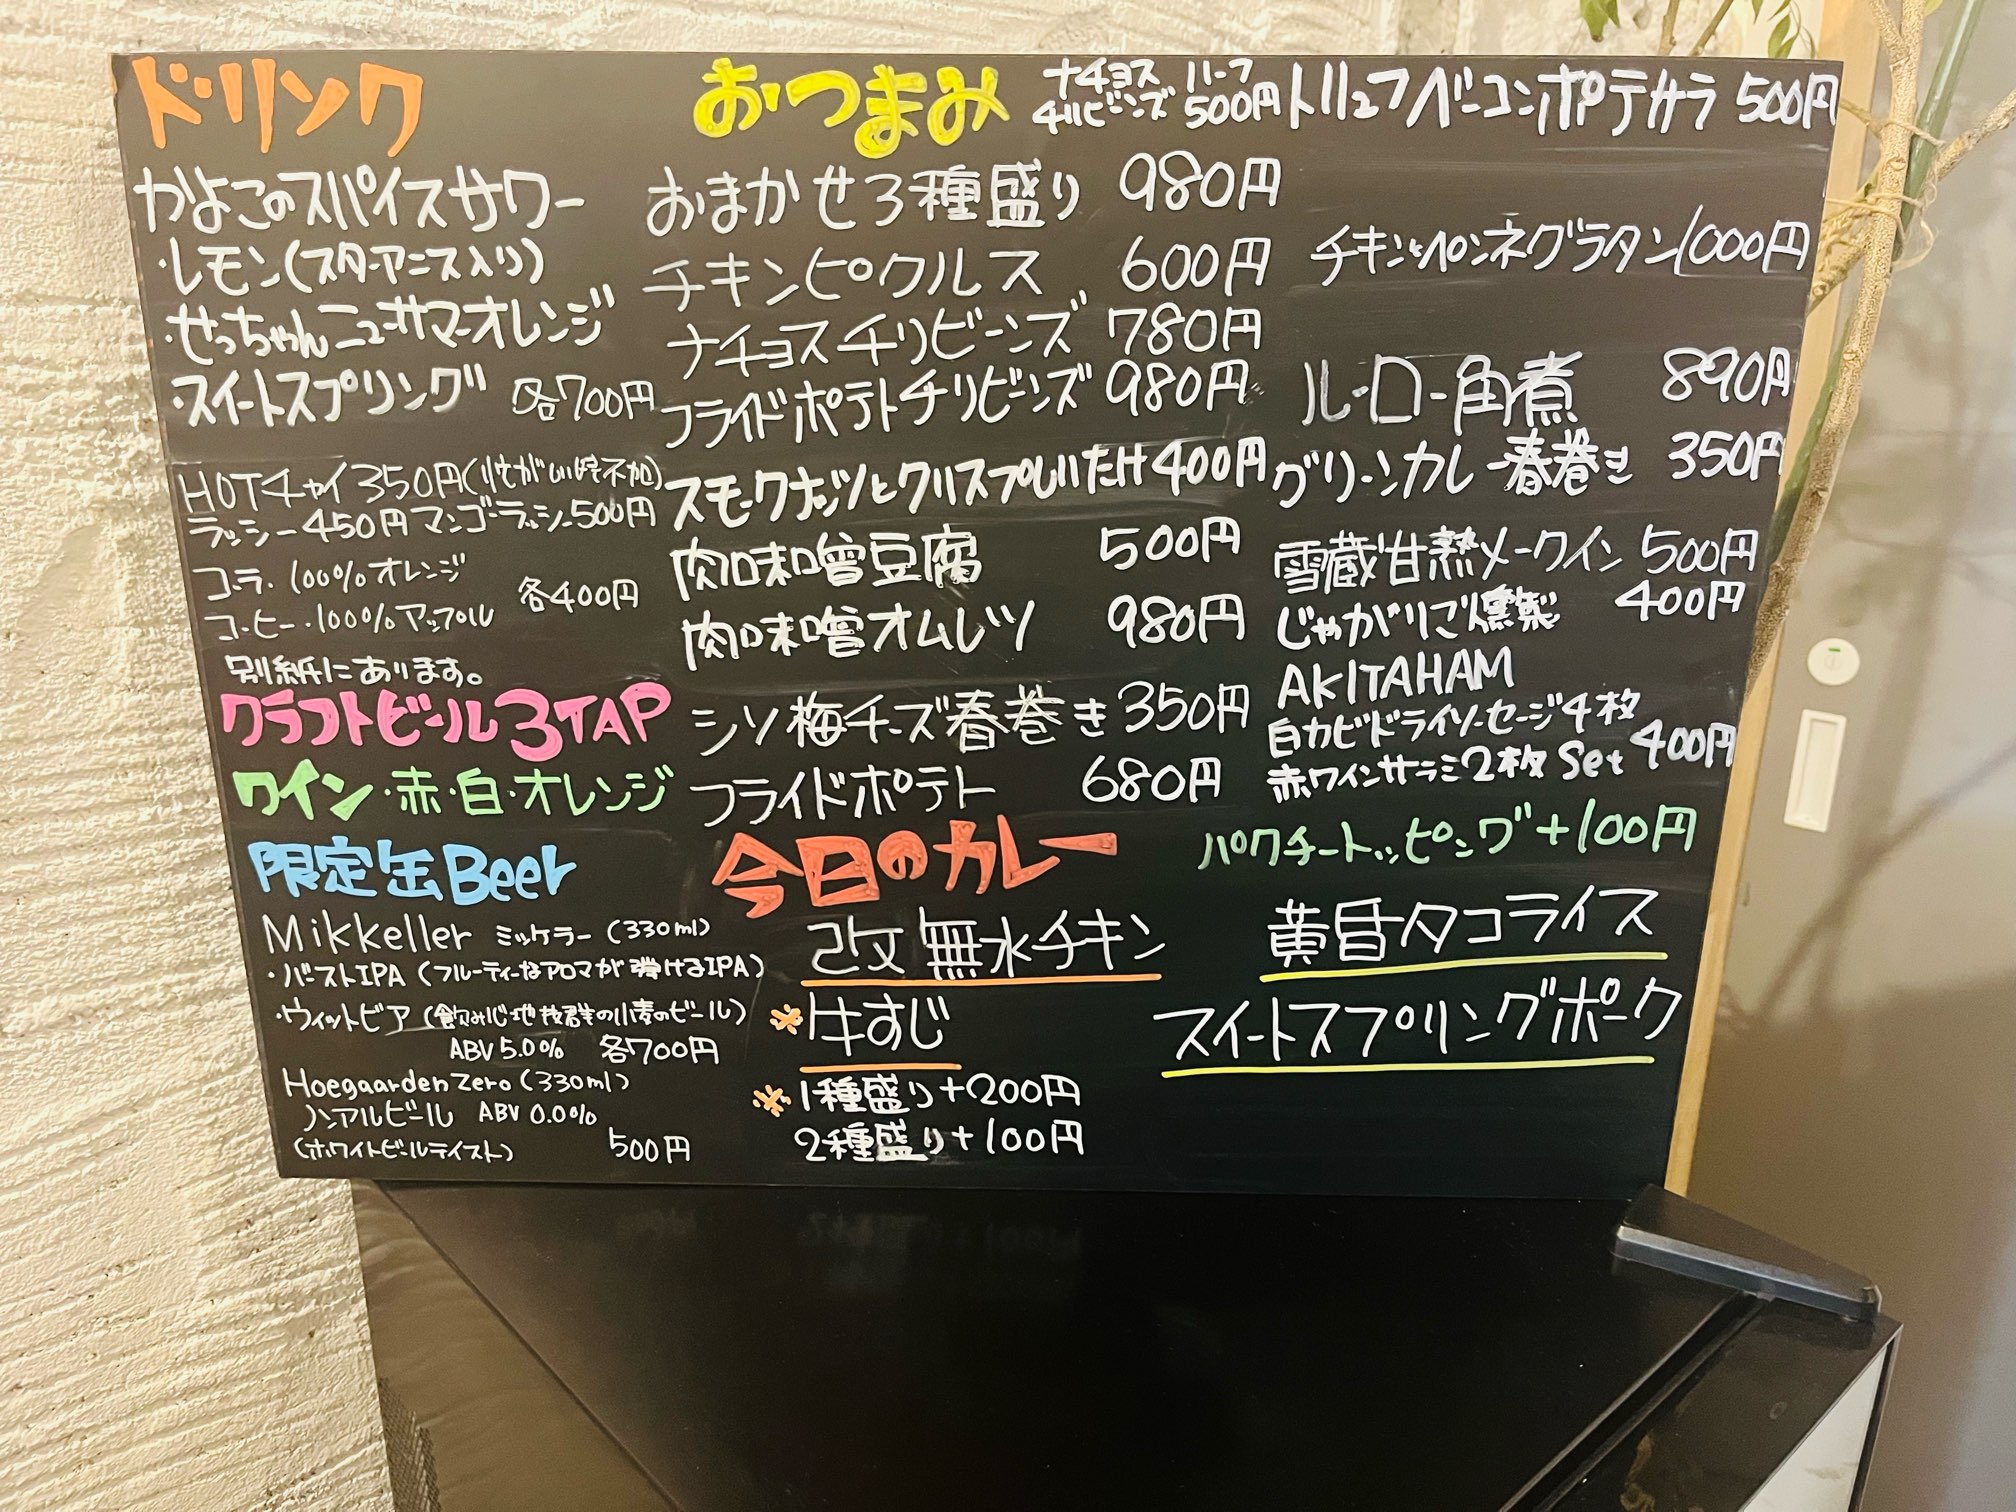 ドリンク
かよこのスパイスサワー
・レモン(スターアニス入り)
・せっちゃんニューサマーオレンジ
・スイートスプリング 各700円
HOTチャイ350円
ラッシー450円 マンゴーラッシー500円
コーラ・100%オレンジ
コーヒー・100%アップル 各400円
別紙にあります。
クラフトビール3TAP
ワイン・赤・白・オレンジ
限定缶Beer
Mikkeller ミッケラー(330ml)
・バーストIPA(フルーティーなアロマが弾けるIPA)
・ウィットビア(飲み心地抜群の小麦のビール)
ABV5.0% 各700円
Hoegaarden Zero(330ml)
ノンアルビール ABV 0.0%
(ホワイトビールテイスト) 500円
おつまみ
ナチョス ハーフ
チリビーンズ 500円
おまかせ3種盛り 980円
チキンピクルス 600円
ナチョスチリビーンズ 780円
フライドポテトチリビーンズ 980円
スモークナッツとクリスプしいたけ400円
肉味噌豆腐 500円
肉味噌オムレツ 980円
シソ梅チーズ春巻き 350円
フライドポテト 680円
トリュフベーコンポテサラ 500円
チキンとペンネグラタン1000円
ルーロー角煮 890円
グリーンカレー春巻き 350円
雪蔵甘熟メークイン 500円
じゃがりご燻製 400円
AKITAHAM
白カビドライソーセージ4枚
赤ワインサラミ2枚 Set 400円
パクチートッピング+100円
今日のカレー
改 無水チキン
※牛すじ
※1種盛り+200円
2種盛り+100円
黄昏タコライス
スイートスプリングポーク